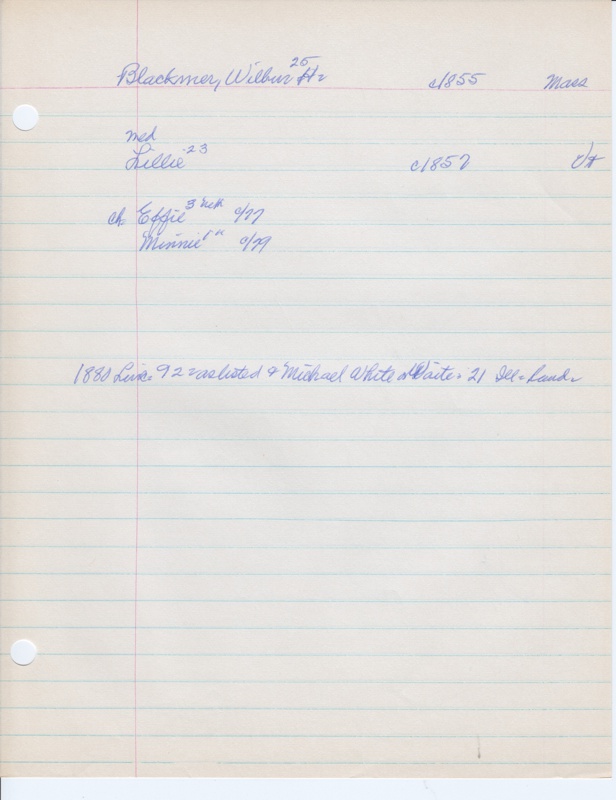 Blackmer, Wilbur H. 25 c1855 Mass
med
Lillie 23 c1857 Vt
ch Effie 3 c/77
Minnie 1 c/79
1880 Line 92 as listed & Michael White or Waite 21 Ill.